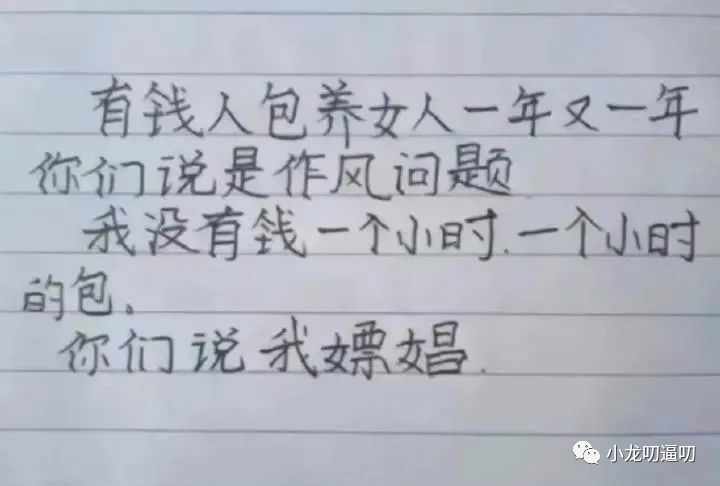 有钱人包养女人一年又一年
你们说是作风问题
我没有钱一个小时.一个小时
的包。
你们说我嫖娼.
小龙叨逼叨